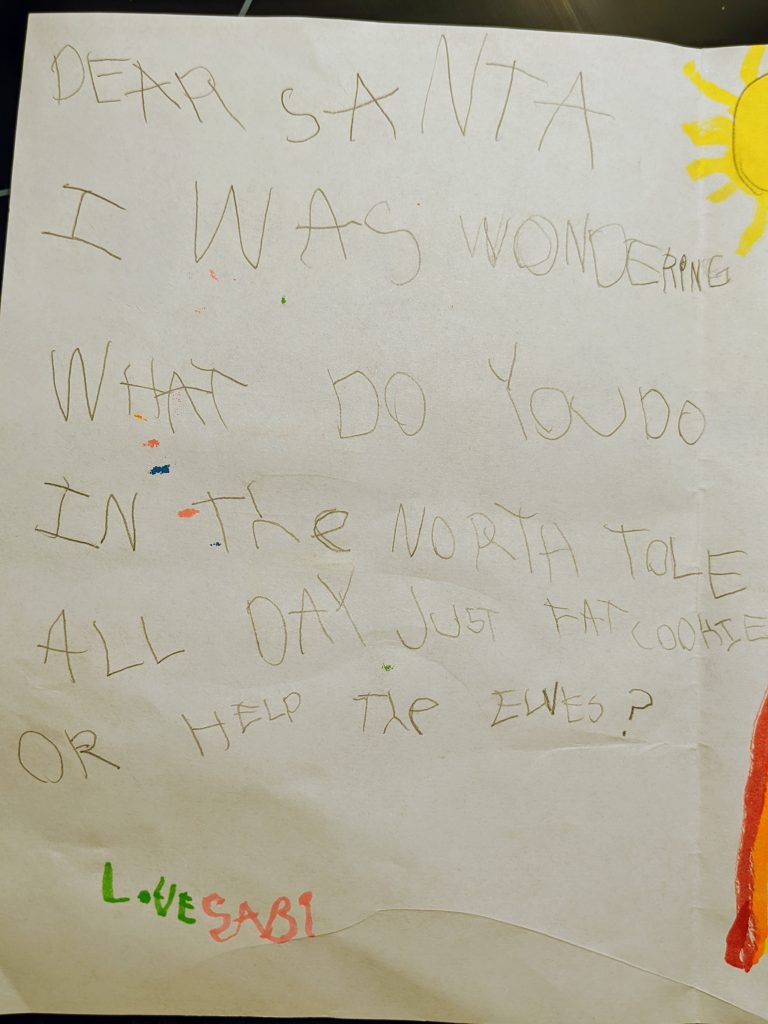 DEAR SANTA
I WAS WONDERING
WHAT DO YOU DO
IN The NORTH TOLE
ALL DAY JUST EAT COOKIE
OR HELP The ELVES?
LOVE SABI